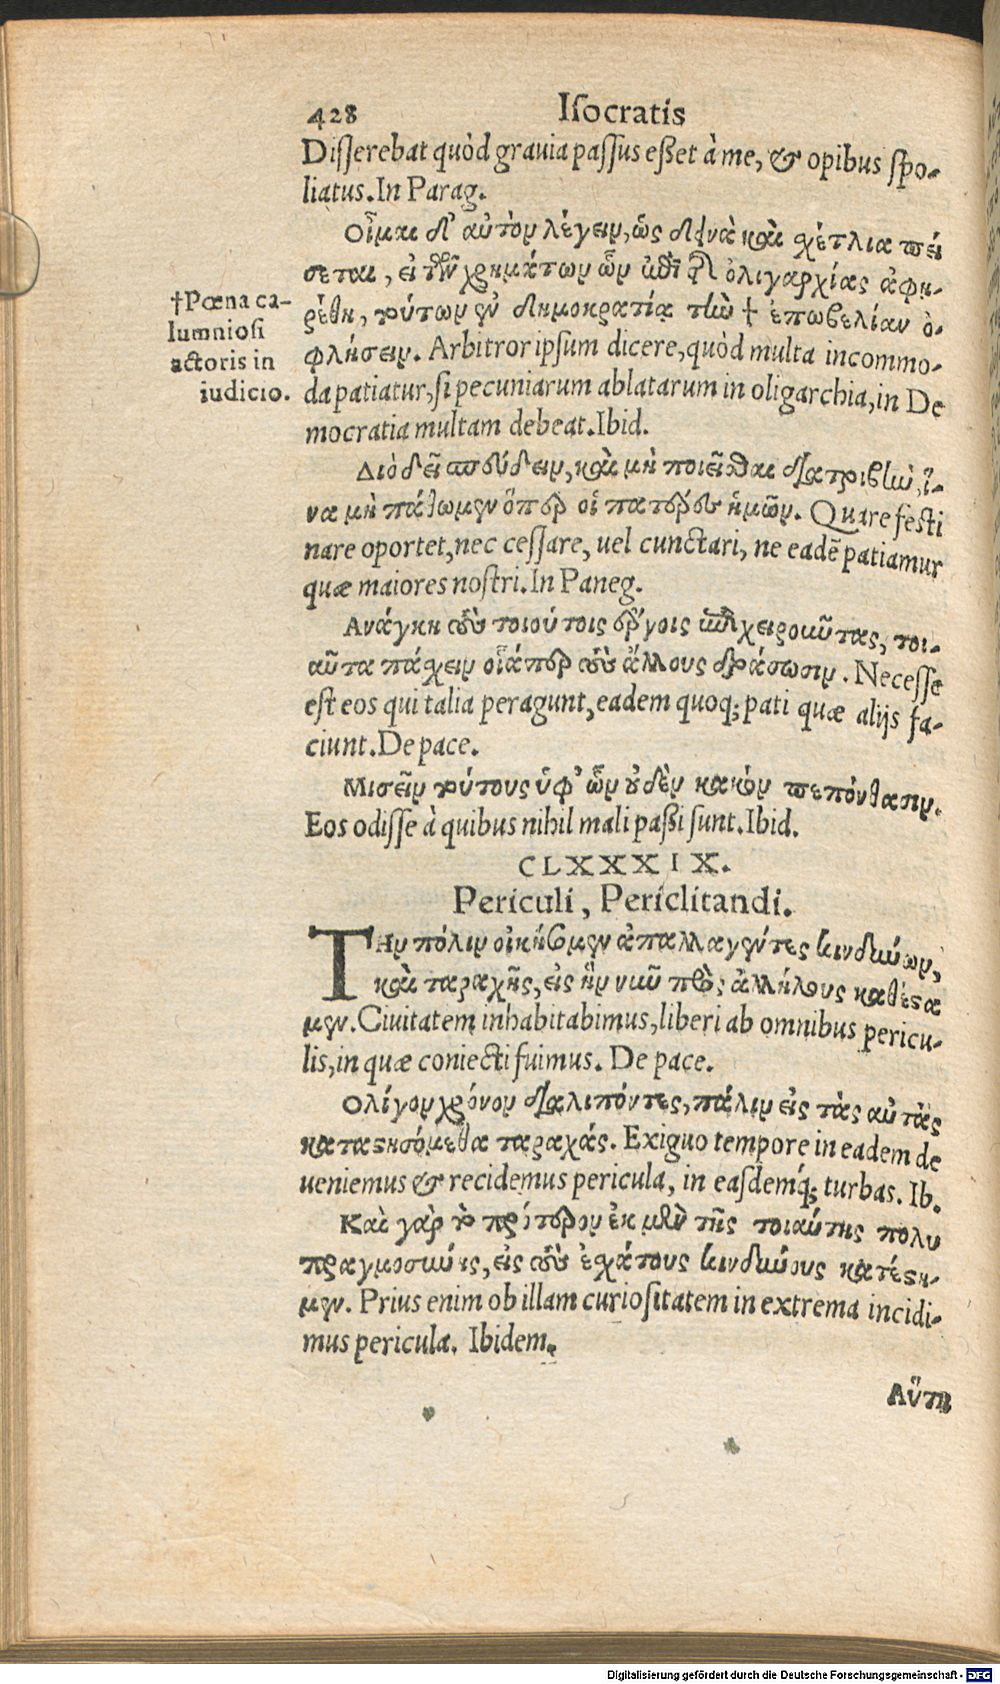 428 Isocratis
Disserebat quòd grauia passus esset à me, & opibus spo-
liatus. In Parag.
Οἶμαι δ' αὐτὸν λέγειν, ὡς δεινὰ καὶ σχέτλια πεί
σεται, εἰ τῶν χρημάτων ὧν ἐπὶ τῆς ὀλιγαρχίας ἀφῃ-
ρέθη, τούτων ἐν δημοκρατίᾳ τὴν † ἐπωβελίαν ὀ-
φλήσειν. Arbitror ipsum dicere, quòd multa incommo-
da patiatur, si pecuniarum ablatarum in oligarchia, in De
mocratia multam debeat. Ibid.
†Pœna ca-
lumniosi
actoris in
iudicio.
Διὸ δεῖ σπεύδειν, καὶ μὴ ποιεῖσθαι διατριβὴν, ἵ-
να μὴ πάθωμεν ὅπερ οἱ πατέρες ἡμῶν. Quare festi
nare oportet, nec cessare, uel cunctari, ne eadē patiamur
quæ maiores nostri. In Paneg.
Ανάγκη τοὺς τοιούτοις ἔργοις ἐπιχειροῦντας, τοι-
αῦτα πάσχειν οἷάπερ τοὺς ἄλλους δράσωσιν. Necesse
est eos qui talia peragunt, eadem quoq; pati quæ alijs fa-
ciunt. De pace.
Μισεῖν τούτους ὑφ' ὧν οὐδὲν κακὸν πεπόνθασιν.
Eos odisse à quibus nihil mali passi sunt. Ibid.
CLXXXIX.
Periculi, Periclitandi.
ΤὴΝ πόλιν οἰκήσομεν ἀπαλλαγέντες κινδύνων,
καὶ ταραχῆς, εἰς ἣν νῦν πρὸς ἀλλήλους καθέστα
μεν. Ciuitatem inhabitabimus, liberi ab omnibus pericu-
lis, in quæ coniecti fuimus. De pace.
Ολίγον χρόνον διαλιπόντες, πάλιν εἰς τὰς αὐτὰς
καταστησόμεθα ταραχάς. Exiguo tempore in eadem de
ueniemus & recidemus pericula, in easdemq́; turbas. Ib.
Καὶ γὰρ τὸ πρότερον ἐκ μὲν τῆς τοιαύτης πολυ
πραγμοσύνης, εἰς τοὺς ἐσχάτους κινδύνους κατέστη-
μεν. Prius enim ob illam curiositatem in extrema incidi-
mus pericula. Ibidem.
Αὕτη
Digitalisierung gefördert durch die Deutsche Forschungsgemeinschaft - DFG